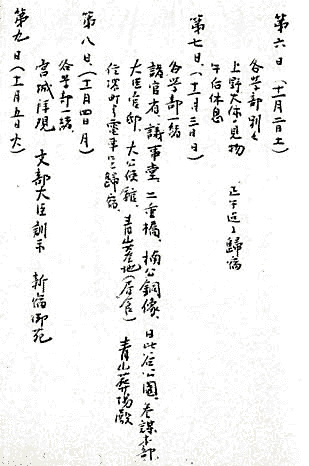 第六日(十一月二日土)
各学部別々
上野大体ノ見物 正午迄ニ歸宿
午后休息
第七日(十一月三日日)
各学部一緒
諸官省、議事堂、二重橋、楠公銅像、日比谷公園、参謀本部、
大臣官邸、大公使館、青山墓地(昼食) 青山葬場殿
信濃町ヨリ電車ニテ歸宿
第八日(十一月四日月)
各学部一緒、
宮城拝観 文部大臣訓示 新宿御苑
第九日(十一月五日火)